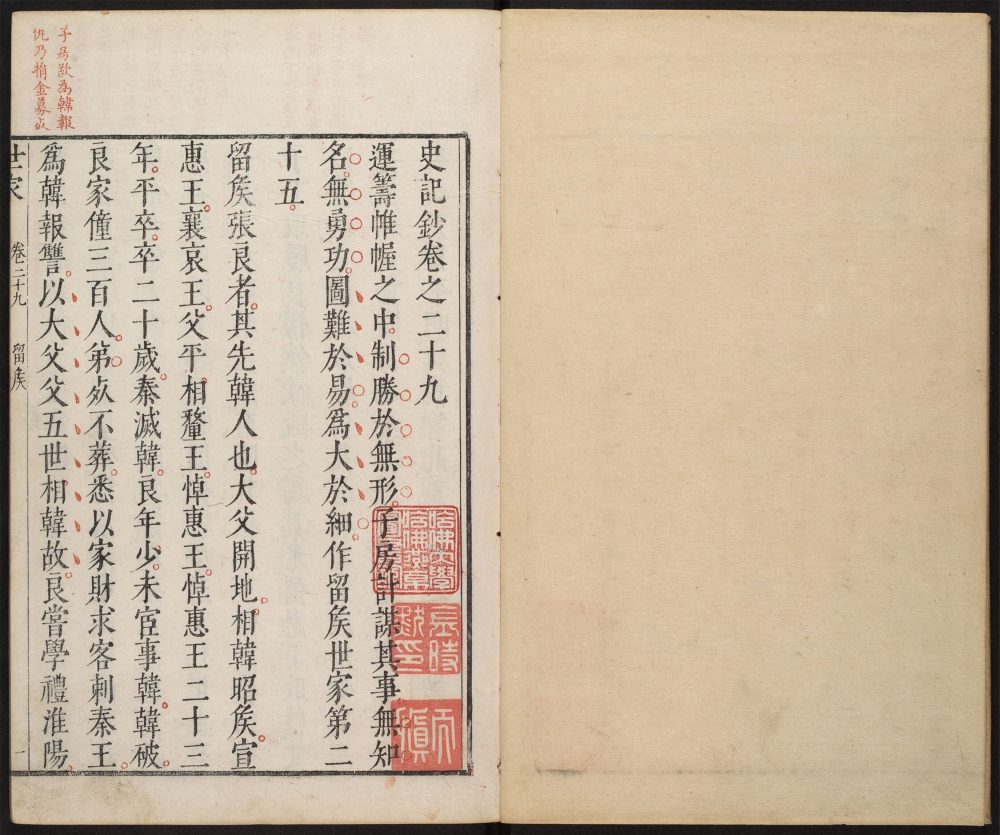 史記鈔卷之二十九
運籌帷幄之中制勝於無形子房計謀其事無知
名無勇功圖難於易爲大於細作留矦世家第二
十五
留矦張良者其先韓人也大父開地相韓昭矦宣
惠王襄哀王父平相釐王悼惠王悼惠王二十三
年平卒卒二十歲秦滅韓良年少未宦事韓韓破
良家僮三百人弟死不葬悉以家財求客刺秦王
爲韓報讐以大父父五世相韓故良嘗學禮淮陽
世家 卷二十九 留矦 一
子房欲為韓報
仇乃捐金募死
哈佛大學
哈佛燕京
圖書